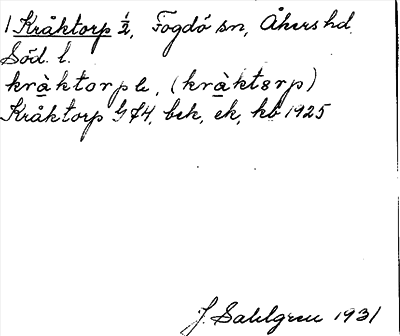 1 Kråktorp ½, Fogdö sn, Åkers hd.
Söd. l.
kràktorp b, (kràktorp)
Kråktorp G 74, bek, ek, kb 1925
J. Sahlgren 1931